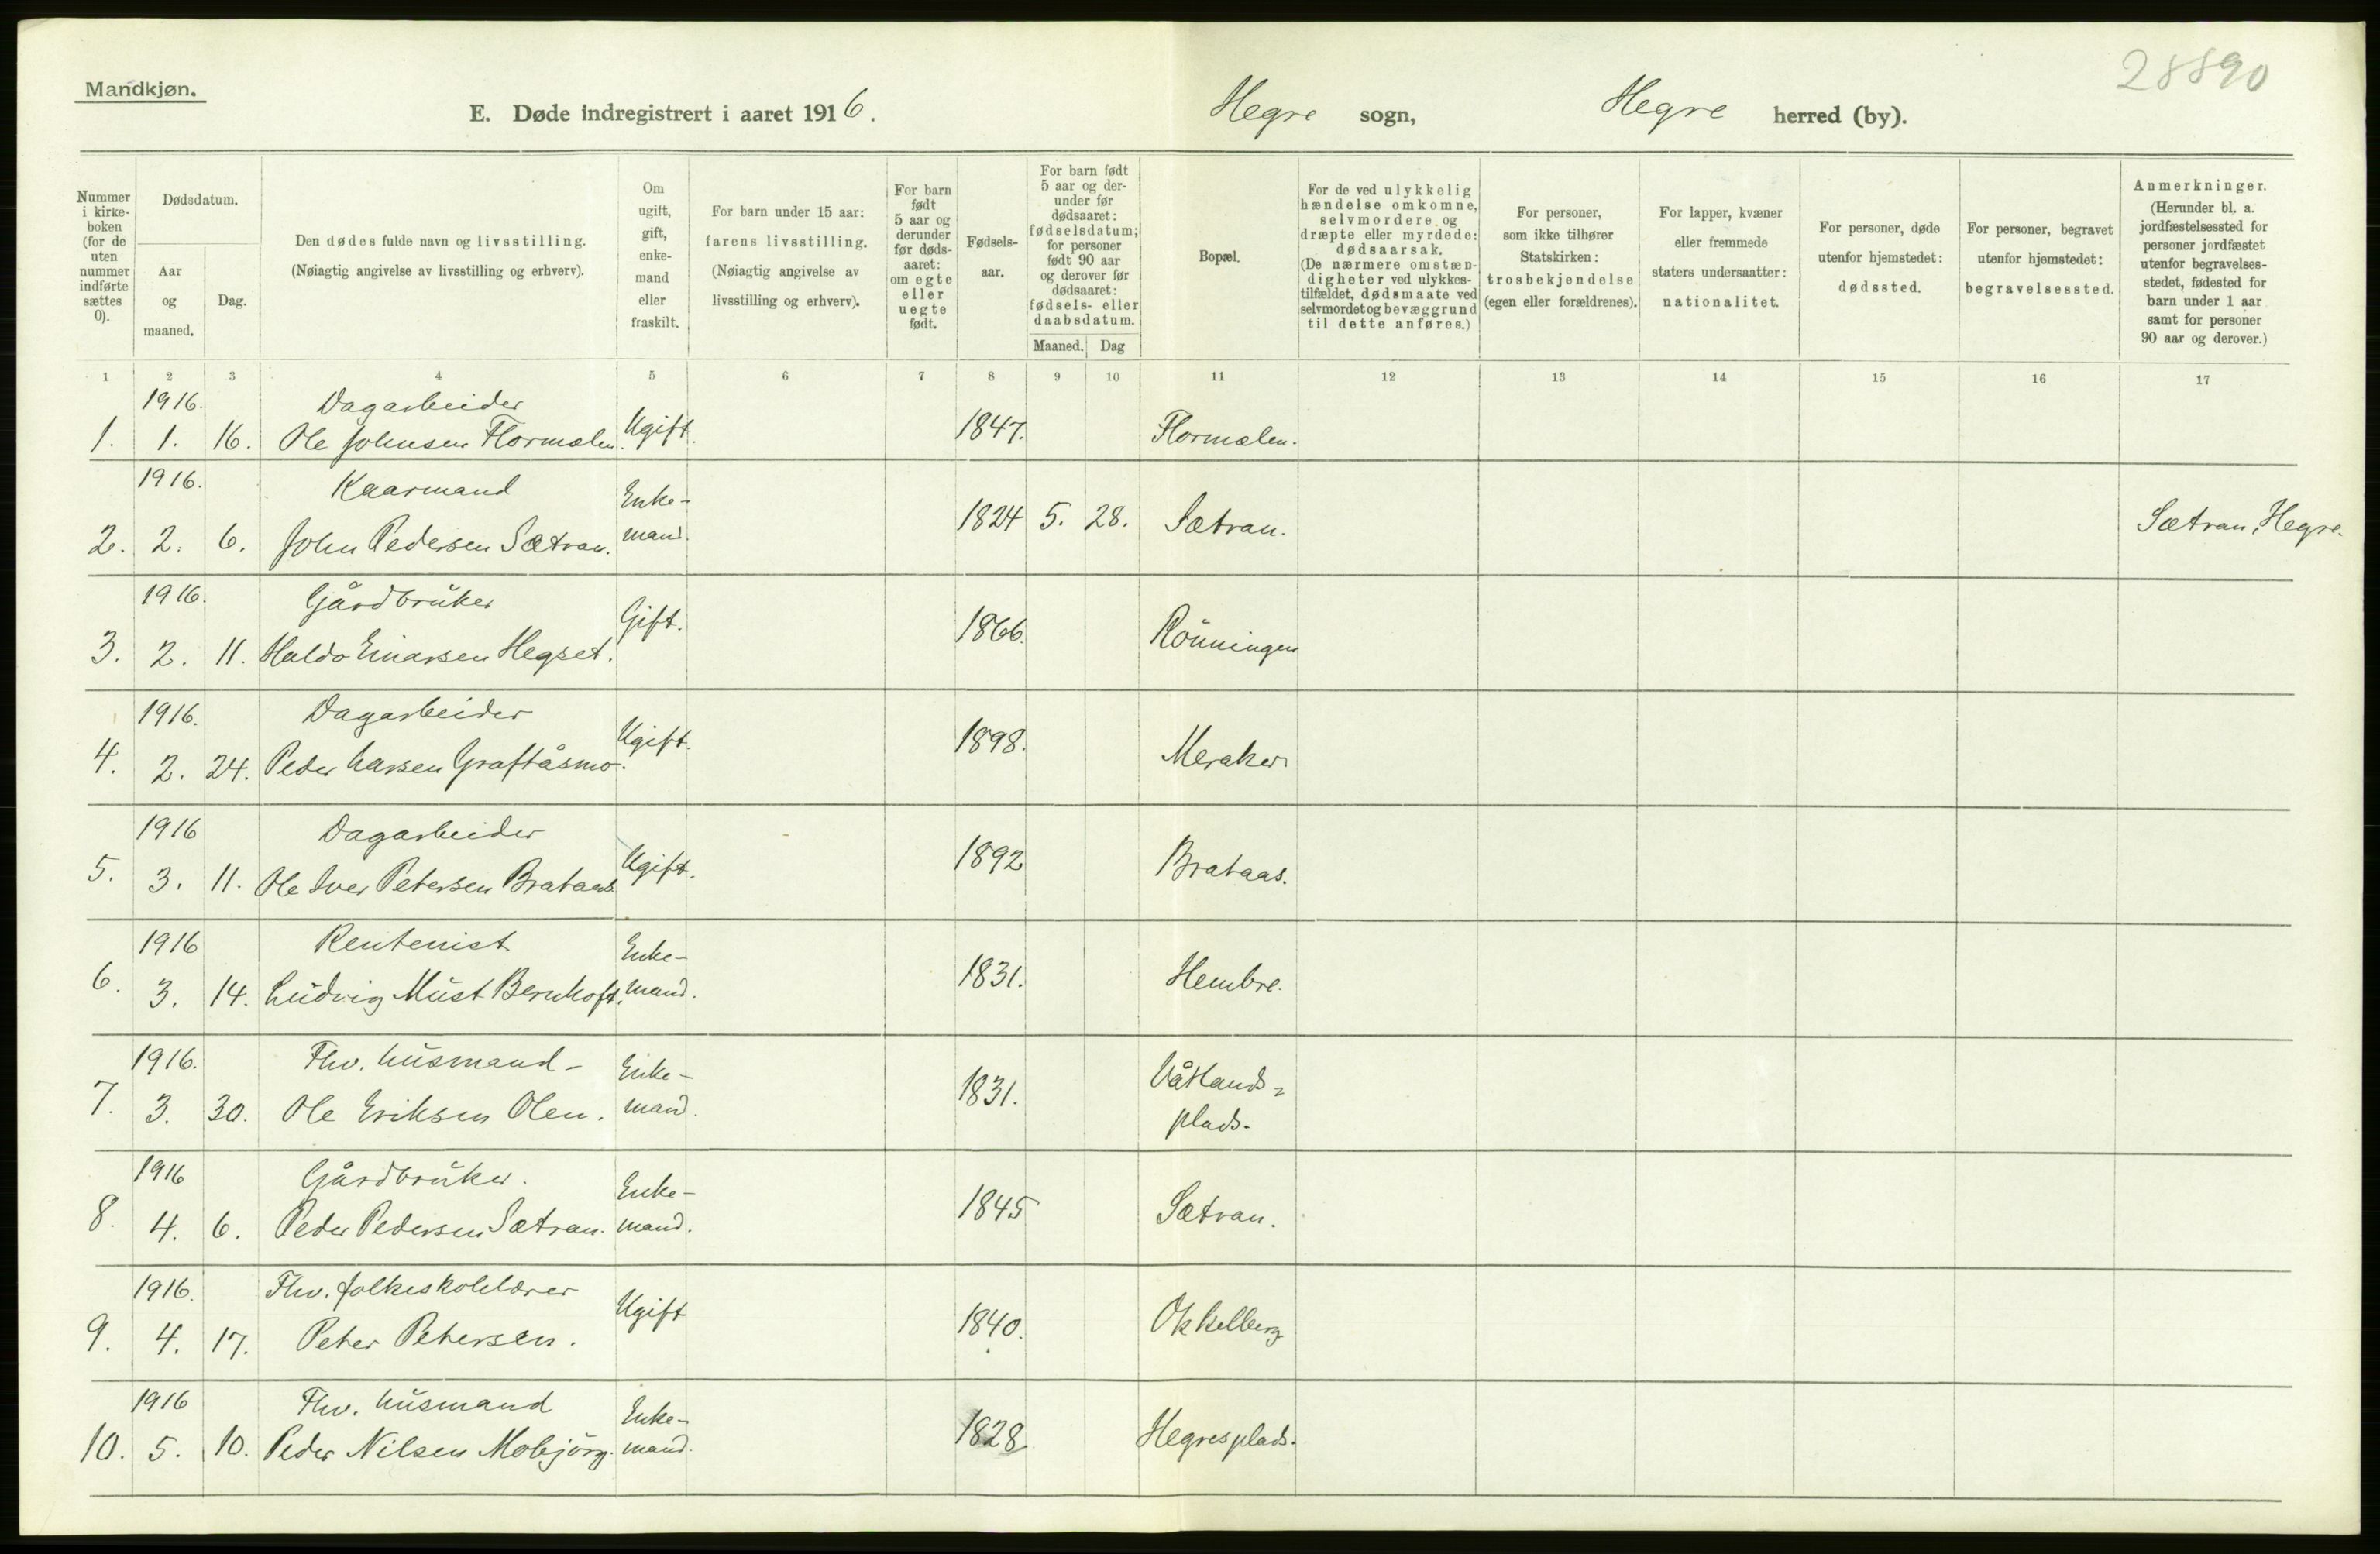 28890
Mandkjøn.
E. Døde indregistrert i aaret 1916. Hegre sogn, Hegre herred (by).
Nummer i kirkeboken (for de uten nummer indførte sættes 0).
Dødsdatum.
Aar og maaned.
Dag.
Den dødes fulde navn og livsstilling.
(Nøiagtig angivelse av livsstilling og erhverv).
Om ugift, gift, enkemand eller fraskilt.
For barn under 15 aar: farens livsstilling. (Nøiagtig angivelse av livsstilling og erhverv).
For barn født 5 aar og derunder før dødsaaret: om egte eller uegte født.
Fødselsaar.
For barn født 5 aar og derunder før dødsaaret: fødselsdatum; for personer født 90 aar og derover før dødsaaret: fødsels- eller daabsdatum.
Maaned. Dag
Bopæl.
For de ved ulykkelig hændelse omkomne, selvmordere og dræpte eller myrdede: dødsaarsak. (De nærmere omstændigheter ved ulykkestilfældet, dødsmaate ved selvmordet og bevæggrund til dette anføres.)
For personer, som ikke tilhører Statskirken: trosbekjendelse (egen eller forældrenes).
For lapper, kvæner eller fremmede staters undersaatter: nationalitet.
For personer, døde utenfor hjemstedet: dødssted.
For personer, begravet utenfor hjemstedet: begravelsessted.
Anmerkninger. (Herunder bl. a. jordfæstelsessted for personer jordfæstet utenfor begravelsesstedet, fødested for barn under 1 aar samt for personer 90 aar og derover.)
1 2 3 4 5 6 7 8 9 10 11 12 13 14 15 16 17
1916. Dagarbeider
1. 1. 16. Ole Johnsen Flormælen. Ugift. 1847. Flormælen.
1916. Kaarmand Enke-
2. 2. 6. John Pedersen Sætran. mand. 1824 5. 28. Sætran. Sætran, Hegre.
1916. Gårdbruker
3. 2. 11. Haldo Einarsen Hegset. Gift. 1866. Rönningen
1916. Dagarbeider
4. 2. 24. Peder Larsen Graftåsmo. Ugift. 1898. Meraker
1916 Dagarbeider
5. 3. 11. Ole Iver Petersen Brataas Ugift. 1892 Brataas.
1916 Rentenist Enke-
6. 3. 14. Ludvig Must Bernhoft. mand. 1831. Hembre.
1916. Fhv. husmand - Enke-
7. 3. 30. Ole Eriksen Olen. mand. 1831. Våtlands-
plads.
1916 Gårdbruker. Enke-
8. 4. 6. Peder Pedersen Sætran. mand. 1845 Sætran.
1916. Fhv. folkeskolelærer
9. 4. 17. Peter Petersen. Ugift 1840. Okkelberg
1916 Fhv. husmand Enke-
10. 5. 10. Peder Nilsen Mobjörg. mand. 1828 Hegresplads.